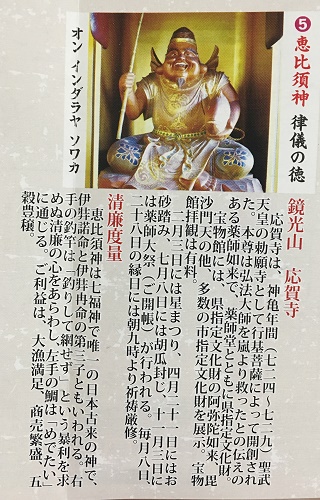 ❺恵比須神 律儀の徳
オン インダラヤ ソワカ
鏡光山 応賀寺
応賀寺は、神亀年間（七二四〜七二九）聖武
天皇の勅願寺として行基菩薩によって開創され
た。本尊は弘法大師を嵐より救ったとの伝えの
ある薬師如来で、薬師堂とともに県指定文化財。
宝物館には、県指定文化財の阿弥陀如来、毘
沙門天の他、多数の市指定文化財を展示。宝物
館拝観は有料。
二月三日には星まつり、四月二十一日にはお
砂踏み、七月八日には胡瓜封じ、十一月三日に
は薬師大祭（ご開帳）が行われる。毎月八日、
二十八日の縁日には朝九時より祈祷厳修。
清廉度量
恵比須神は七福神で唯一の日本古来の神で、
伊弉諾命と伊弉冉命の第三子ともいわれる。右
手の釣竿は「釣りして網せず」という暴利を求
めぬ清廉の心をあらわし、左手の鯛は「めでたい」
に通じる。ご利益は、大漁満足、商売繁盛、五
穀豊穣。